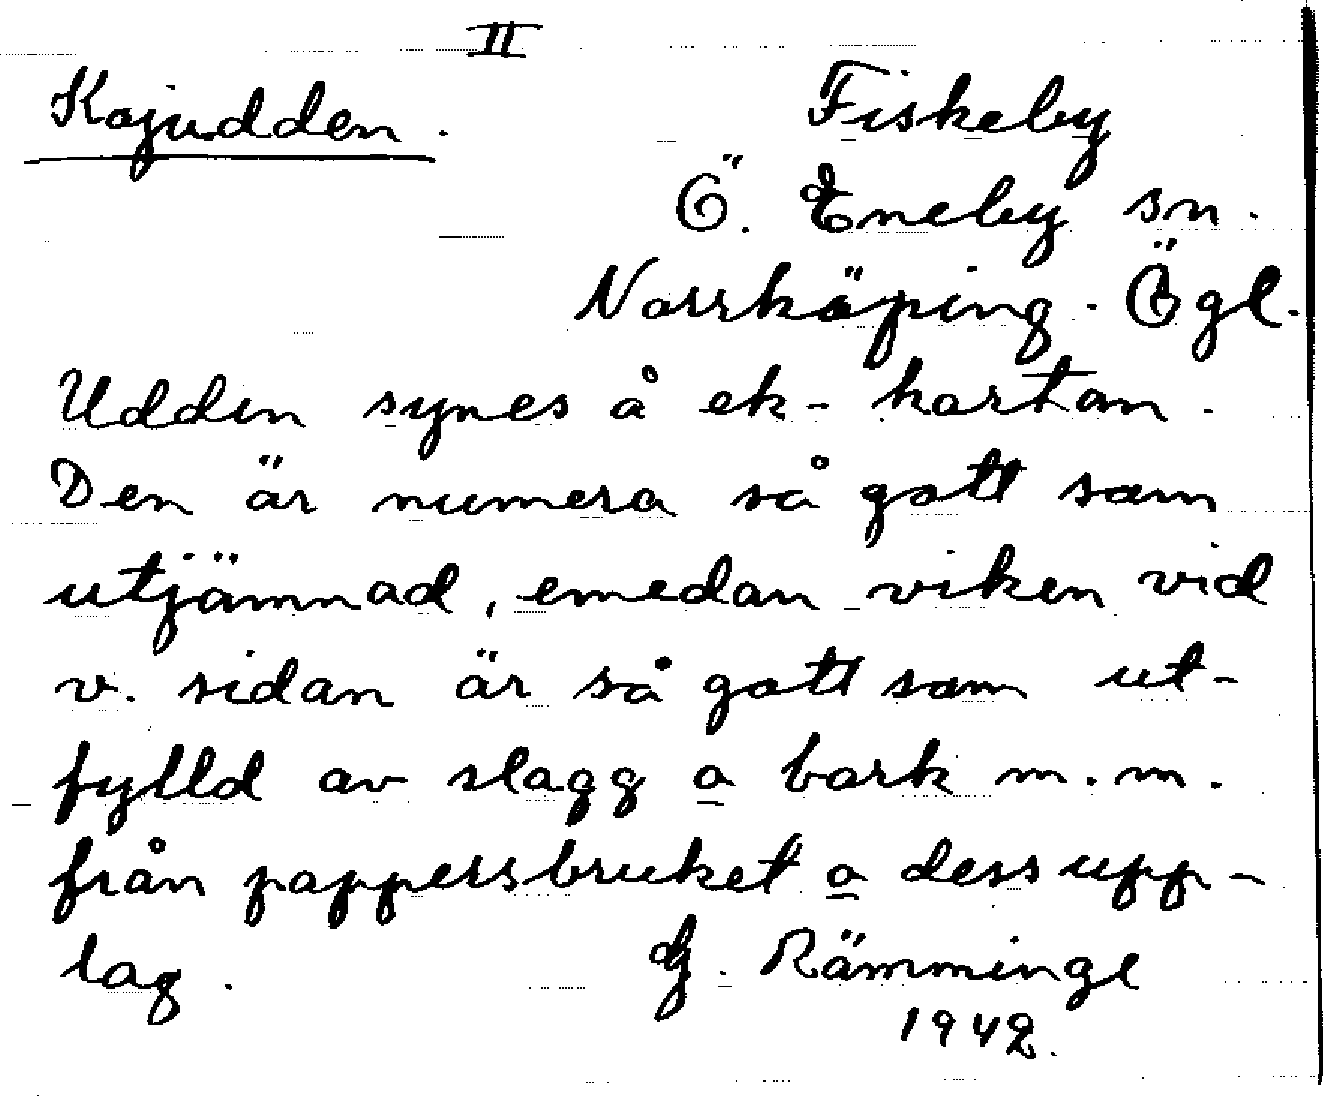 II
Kajudden. Fiskeby
Ö. Eneby sn.
Norrköping. Ögl.
Udden synes å ek-kartan.
Den är numera så gott som
utjämnad, emedan viken vid
v. sidan är så gott som ut-
fylld av slagg o bark m.m.
från pappersbruket o dess upp-
lag. G. Rämminge
1942.